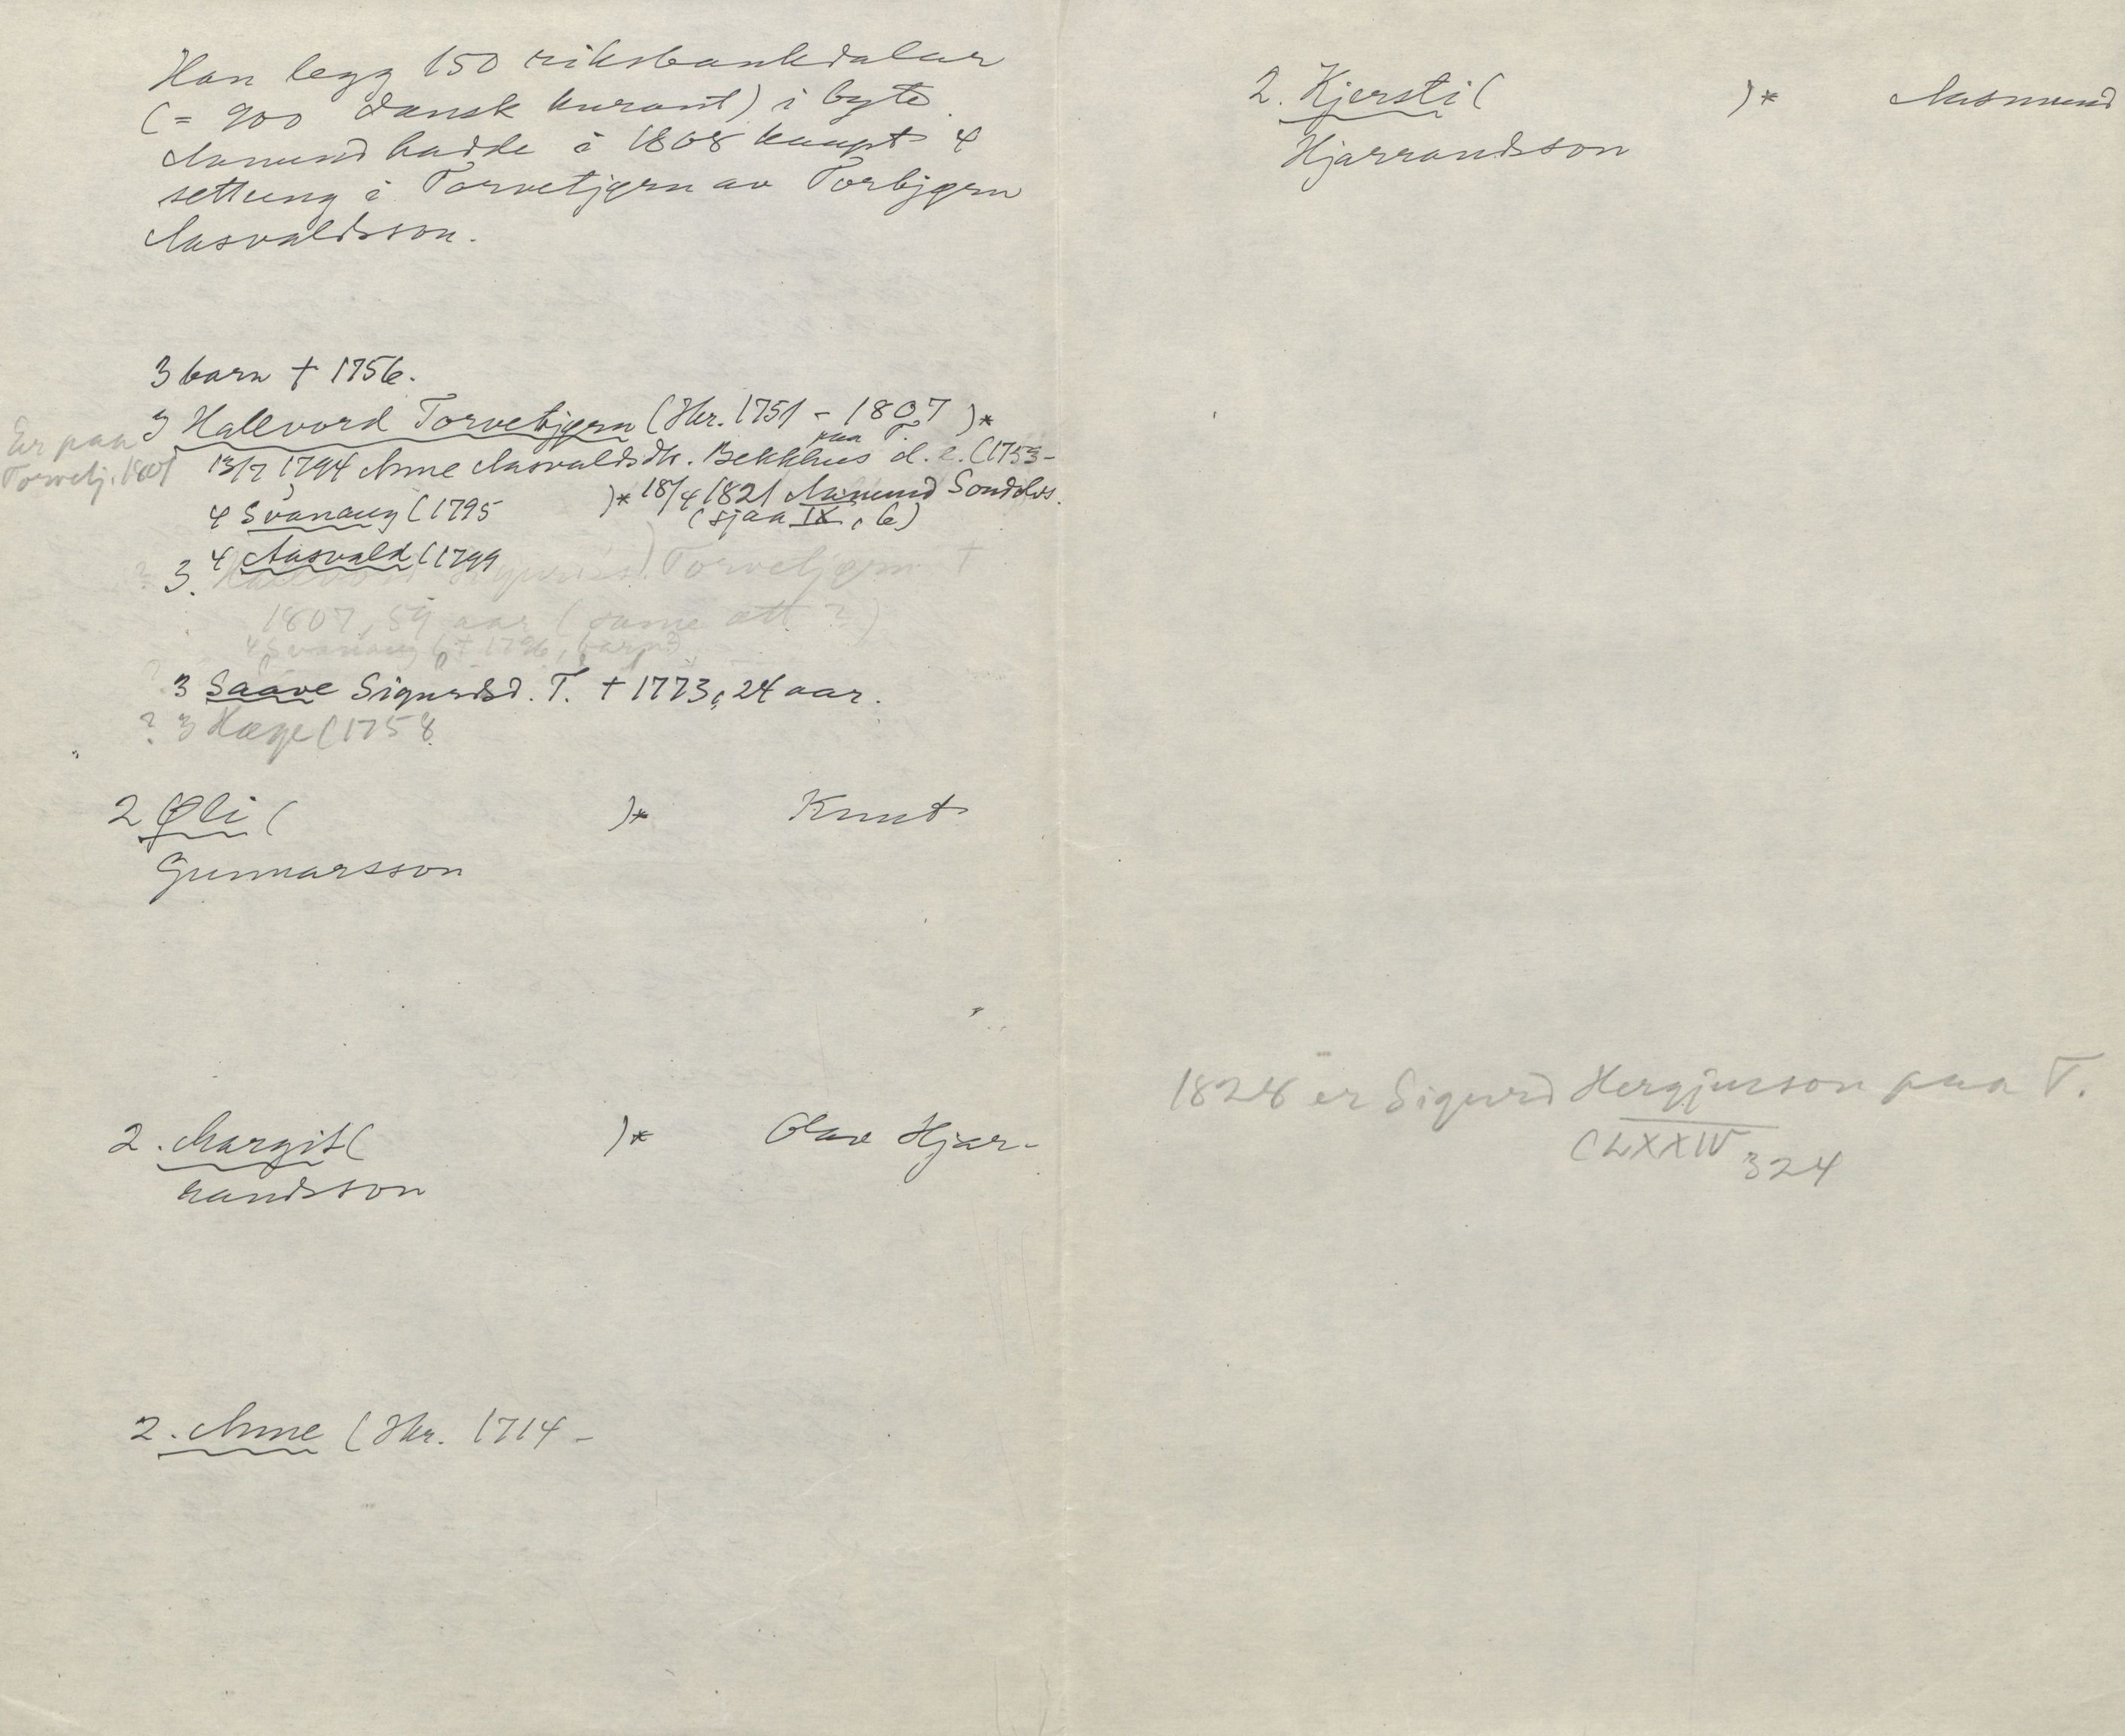 Han legg 150 riksbankdalar
(= 900 dansk kurant) i byte.
Aamund hadde i 1808 kaupt 4
settung i Torvetjørn av Torbjørn
Aasvaldsson.
3 barn † 1756.
3 Hallvord Torvetjørn (Hkr. 1751 – 1807 )*
paa T.
Er paa
Torvetj. 1801
13/7 1794 Anne Aasvaldsdtr. Bekkhus d. e. (1753–
4 Svanaug (1795 )* 18/4 1821 Aamund Sondrés.
(sjaa IX, 6)
4 Aasvald (1799
3. Torvetjørn †
1807, 59 aar (same ått ?)
4 Svanaug († 1796, barn)
3 Saave Sigurdsd. T. † 1773, 24 aar.
? 3 Hæge (1758
2 Øli ( )* Knut
Gunnarsson
2. Margit ( )* Olav Hjar-
randsson
2. Anne (Hkr. 1714 –
2. Kjersti ( )* Aasmund
Hjarrandsson
1828 er Sigurd Hergjusson paa T.
CLXXIV 324